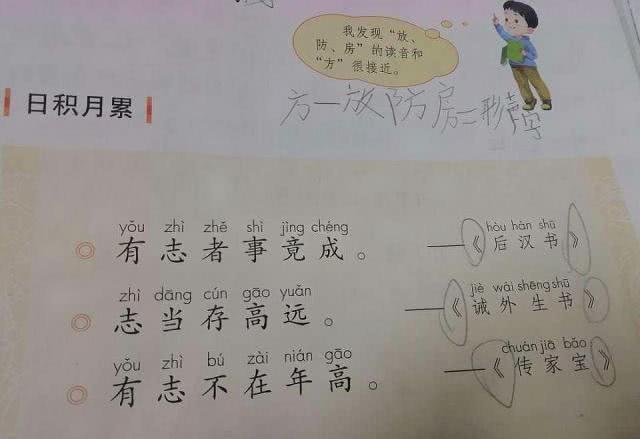 我发现“放、
防、房”的读音和
“方”很接近。
方—放防房=形声字
日积月累
yǒu zhì zhě shì jìng chéng
有志者事竟成。
hòu hàn shū
——《后汉书》
zhì dāng cún gāo yuǎn
志当存高远。
jiè wài shēng shū
——《诫外生书》
yǒu zhì bú zài nián gāo
有志不在年高。
chuán jiā bǎo
——《传家宝》